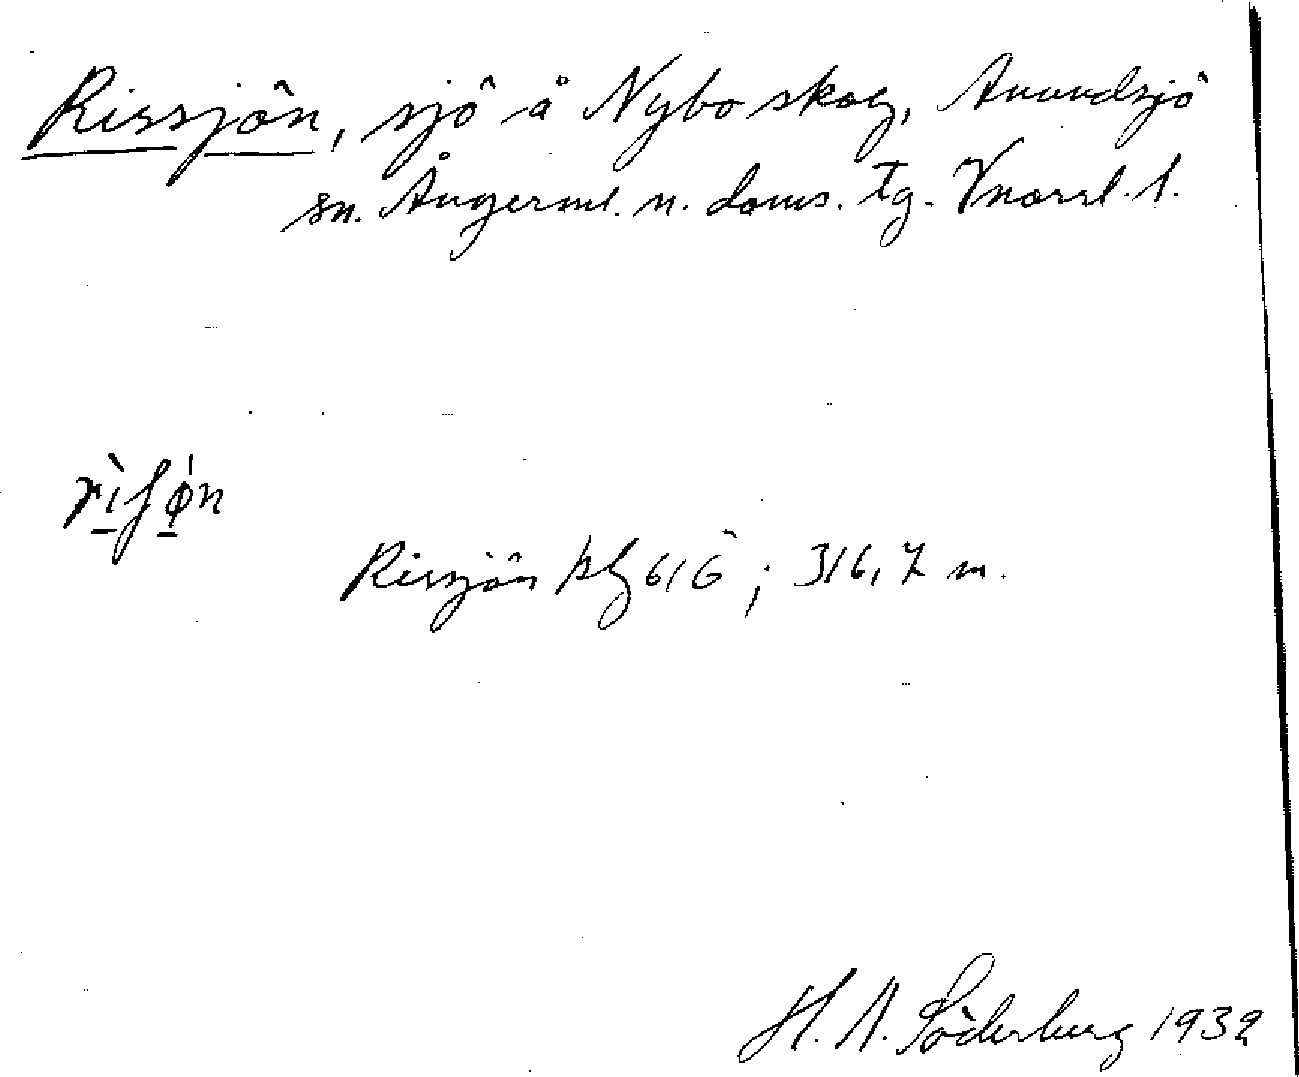 Rissjön, sjö å Nybo skog, Anundsjö
sn. Ångerml. n. doms. tg. Vnorrl. l.
rìʃø̀n
Rissjön bl 61 Ö; 316,7 m.
H. A. Söderberg 1932